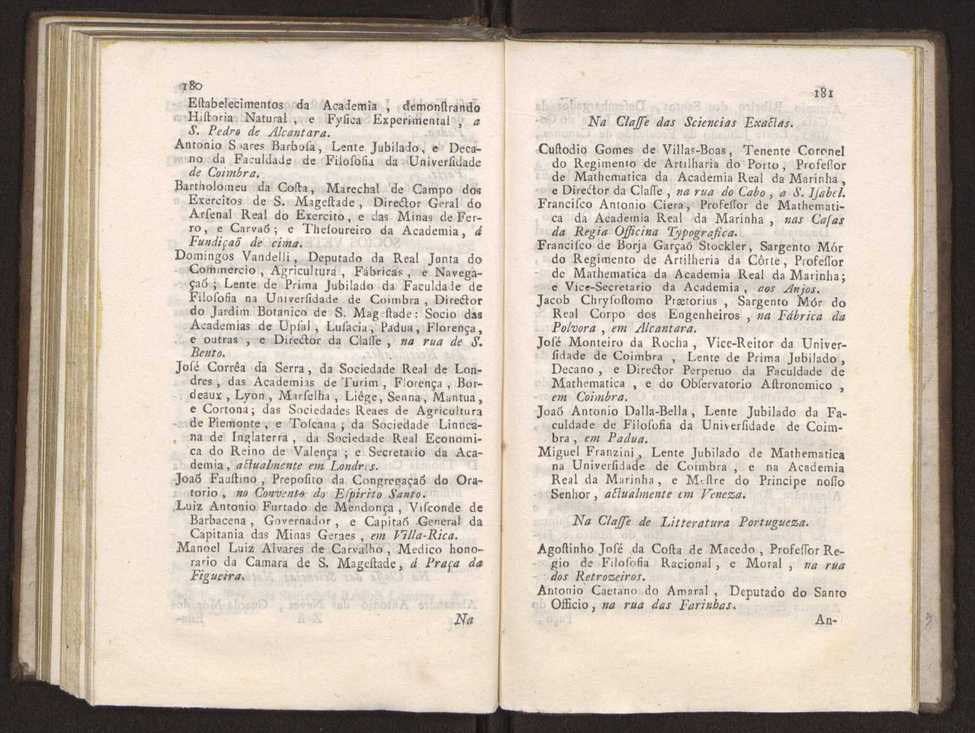 180
Eſtabelecimentos da Academia , demonſtrando
Hiſtoria Natural , e Fyſica Experimental , a
S. Pedro de Alcantara.
Antonio Soares Barboſa, Lente Jubilado, e Deca-
no da Faculdade de Filoſofia da Univerſidade
de Coimbra.
Bartholomeu da Coſta, Marechal de Campo dos
Exercitos de S. Mageſtade, Director Geral do
Arſenal Real do Exercito, e das Minas de Fer-
ro, e Carvaõ; e Theſoureiro da Academia, á
Fundiçaõ de cima.
Domingos Vandelli, Deputado da Real Junta do
Commercio, Agricultura, Fábricas, e Navega-
çaõ; Lente de Prima Jubilado da Faculdade de
Filoſofia na Univerſidade de Coimbra, Director
do Jardim Botanico de S. Mageſtade: Socio das
Academias de Upſal, Luſacia, Padua, Florença,
e outras , e Director da Claſſe , na rua de S.
Bento.
Joſé Corrêa da Serra, da Sociedade Real de Lon-
dres, das Academias de Turim, Florença, Bor-
deaux, Lyon, Marſelha, Liége, Senna, Mantua,
e Cortona; das Sociedades Reaes de Agricultura
de Piemonte, e Toſcana; da Sociedade Linnea-
na de Inglaterra, da Sociedade Real Economi-
ca do Reino de Valença; e Secretario da Aca-
demia, actualmente em Londres.
Joaõ Fauſtino, Prepoſito da Congregaçaõ do Ora-
torio , no Convento do Eſpirito Santo.
Luiz Antonio Furtado de Mendonça, Viſconde de
Barbacena, Governador, e Capitaõ General da
Capitania das Minas Geraes, em Villa-Rica.
Manoel Luiz Alvares de Carvalho, Medico hono-
rario da Camara de S. Mageſtade, á Praça da
Figueira.
Na
181
Na Claſſe das Sciencias Exactas.
Cuſtodio Gomes de Villas-Boas, Tenente Coronel
do Regimento de Artilharia do Porto, Profeſſor
de Mathematica da Academia Real da Marinha,
e Director da Claſſe, na rua do Cabo, a S. Iſabel.
Franciſco Antonio Ciera, Profeſſor de Mathemati-
ca da Academia Real da Marinha, nas Caſas
da Regia Officina Typografica.
Franciſco de Borja Garçaõ Stockler, Sargento Mór
do Regimento de Artilheria da Côrte, Profeſſor
de Mathematica da Academia Real da Marinha;
e Vice-Secretario da Academia, aos Anjos.
Jacob Chryſoſtomo Prætorius , Sargento Mór do
Real Corpo dos Engenheiros , na Fábrica da
Polvora , em Alcantara.
Joſé Monteiro da Rocha, Vice-Reitor da Univer-
ſidade de Coimbra , Lente de Prima Jubilado,
Decano , e Director Perpetuo da Faculdade de
Mathematica , e do Obſervatorio Aſtronomico ,
em Coimbra.
Joaõ Antonio Dalla-Bella, Lente Jubilado da Fa-
culdade de Filoſofia da Univerſidade de Coim-
bra, em Padua.
Miguel Franzini, Lente Jubilado de Mathematica
na Univerſidade de Coimbra , e na Academia
Real da Marinha, e Meſtre do Principe noſſo
Senhor , actualmente em Veneza.
Na Claſſe de Litteratura Portugueza.
Agoſtinho Joſé da Coſta de Macedo, Profeſſor Re-
gio de Filoſofia Racional, e Moral , na rua
dos Retrozeiros.
Antonio Caetano do Amaral, Deputado do Santo
Officio, na rua das Farinhas.
An-